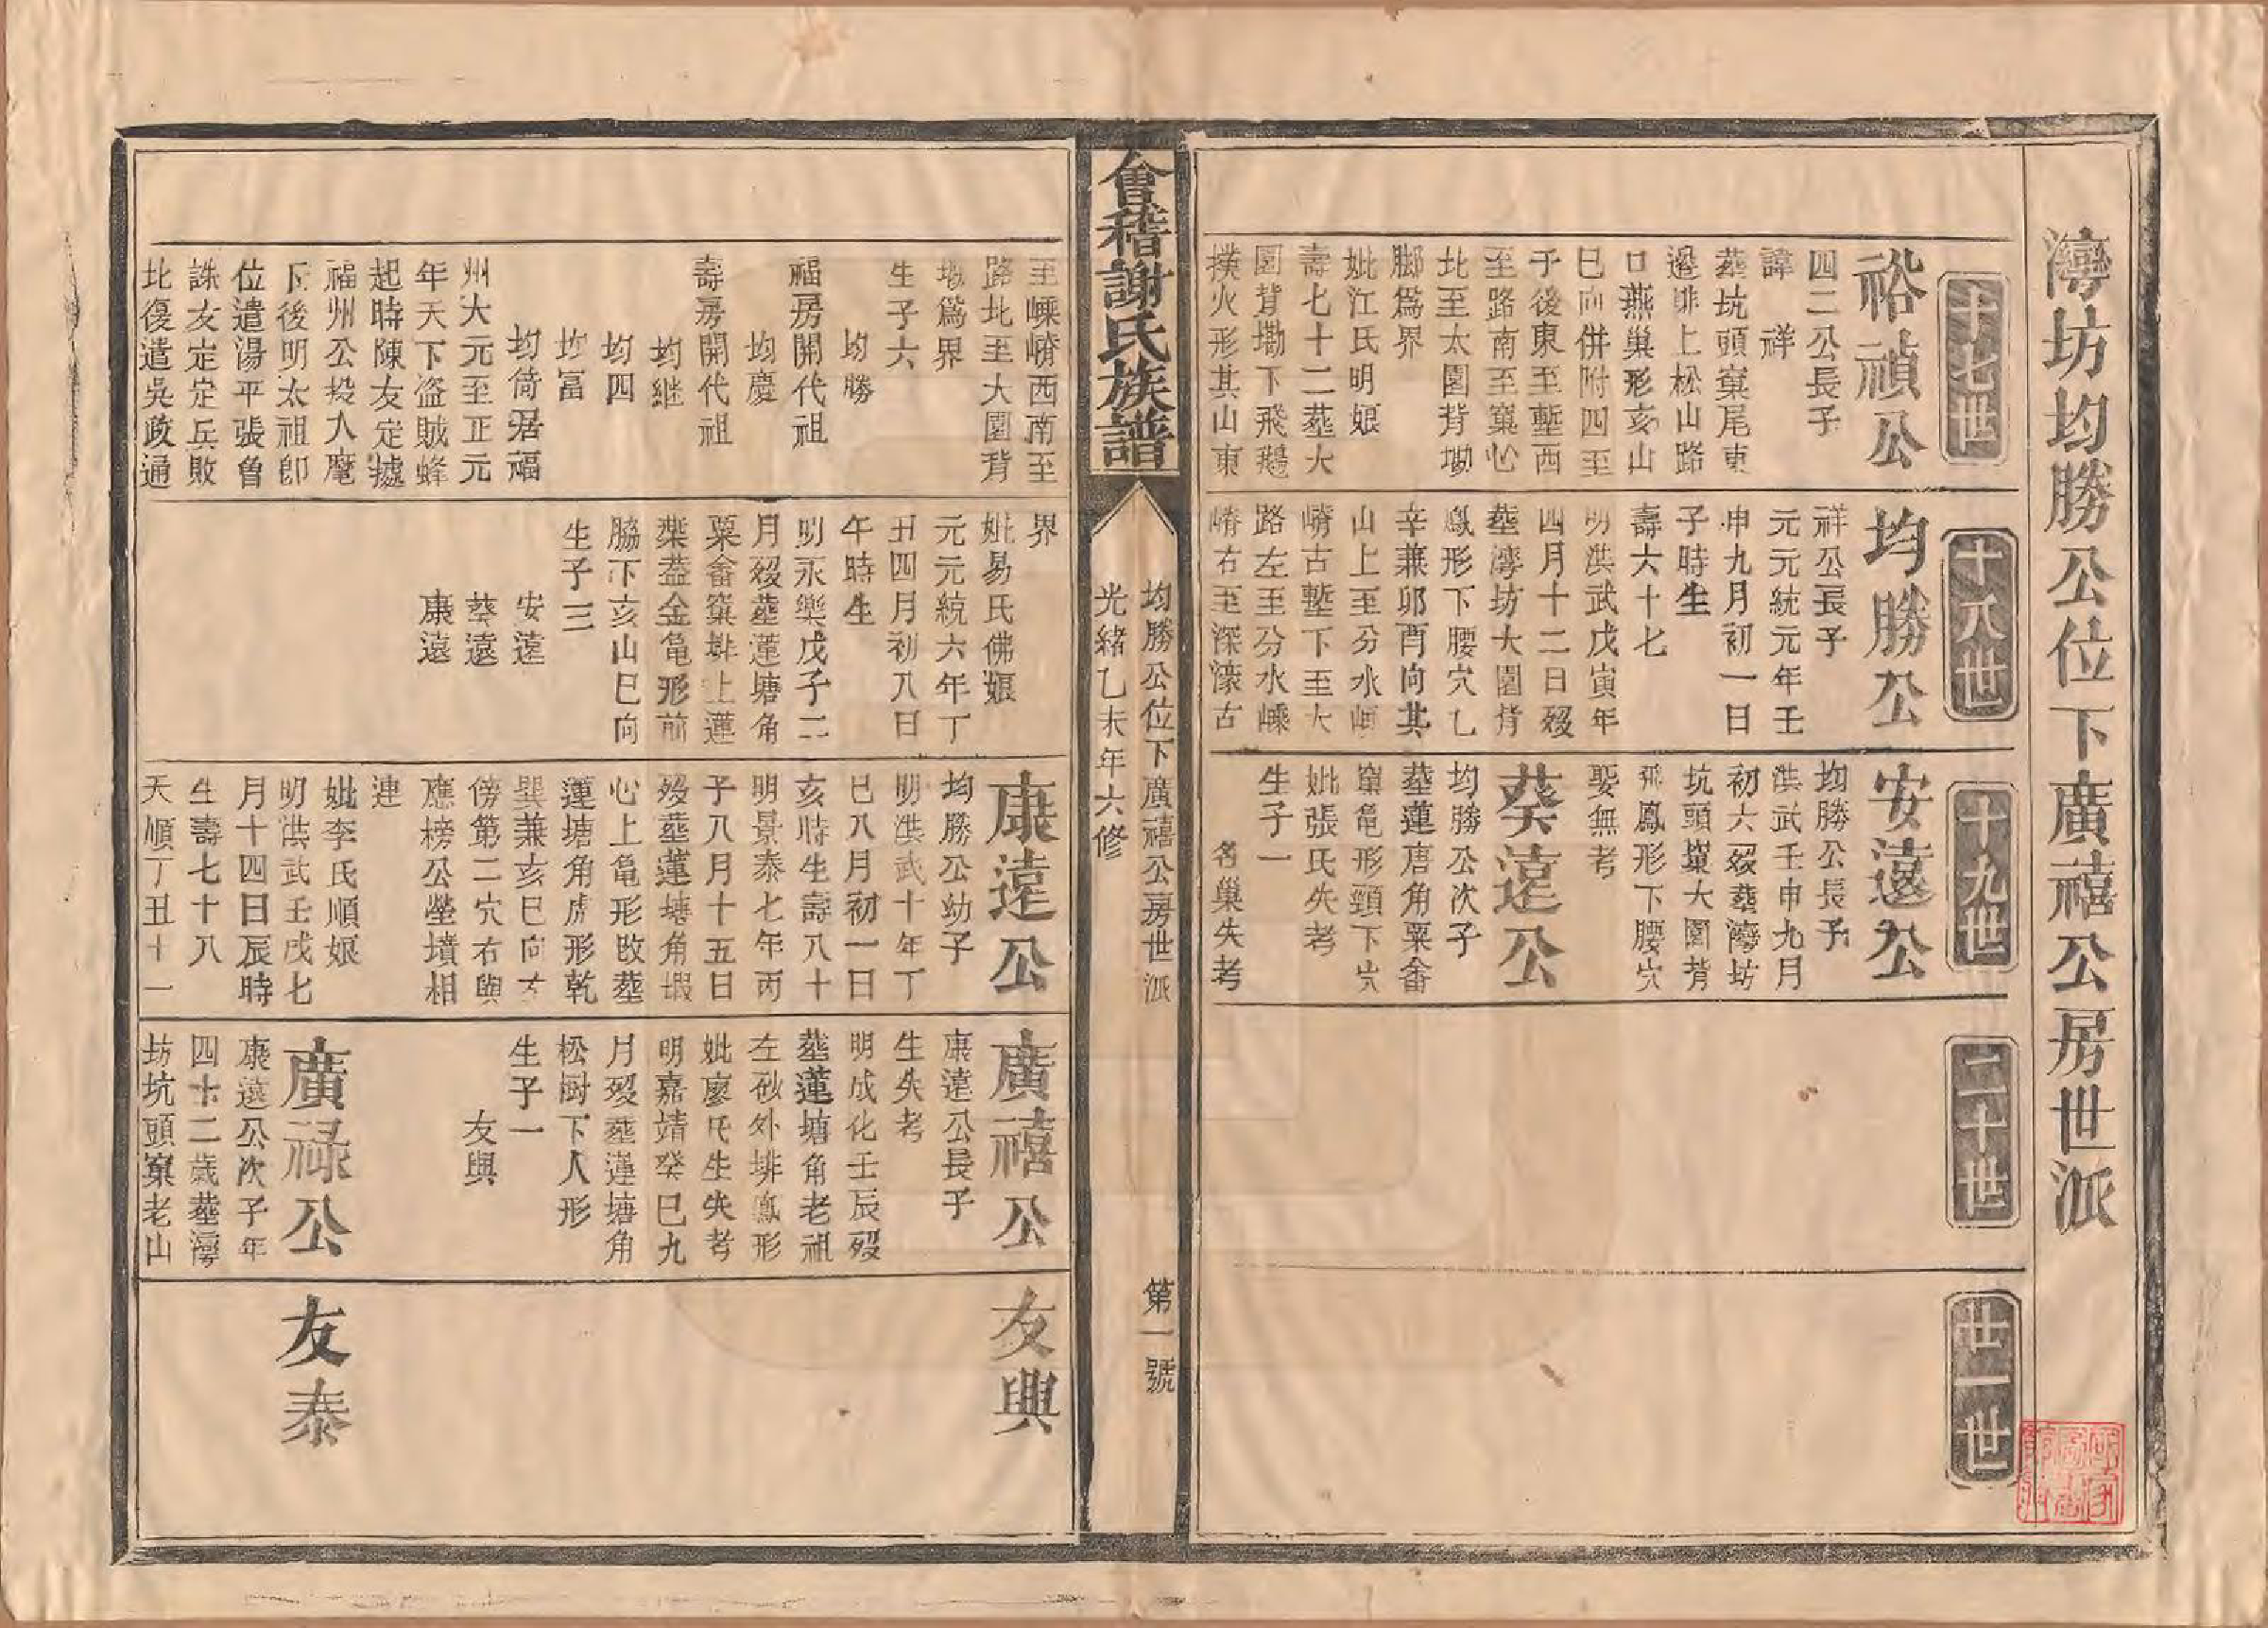 灣坊均勝公位下廣禧公房世派
十七世
裕禎公
四二公長子
諱 祥
葬坑頭窠尾東
邊排上松山路
口燕巢形亥山
巳向併附四至
于後東至塹西
至路南至窠心
北至太園背坳
脚為界
妣江氏明娘
壽七十二葬大
園背墈下飛鵝
撲火形其山東
十八世
均勝公
祥公長子
元元統元年壬
申九月初一日
子時生
壽六十七
明洪武戊寅年
四月十二日歿
葬灣坊大園背
鳳形下腰穴乙
辛兼卯酉向其
山上至分水崠
嵴古塹下至大
路左至分水崠
嵴右至深濠古
十九世
安遠公
均勝公長子
洪武壬申九月
初六歿葬灣坊
坑頭窠大園背
飛鳳形下腰穴
娶無考
葵遠公
均勝公次子
葬蓮唐角粟畲
窠龜形頸下穴
妣張氏失考
生子一
名巢失考
二十世
廿一世
會稽謝氏族譜
均勝公位下廣禧公房世派
第一號
光緒乙未年六修
至崠嵴西南至
路北至大園背
坳為界
生子六
均勝
福房開代祖
均慶
壽房開代祖
均継
均四
均富
均倚居福
州大元至正元
年天下盜賊蜂
起時陳友定據
福州公投入麾
下後明太祖即
位遣湯平張會
誅友定定兵敗
北復遣吳政通
界
妣易氏佛娘
元元統六年丁
丑四月初八日
午時生
明永樂戊子二
月歿葬蓮塘角
粟畲窠排上蓮
葉蓋金龜形前
脇下亥山巳向
生子三
安遠
葵遠
康遠
康遠公
均勝公幼子
明洪武十年丁
巳八月初一日
亥時生壽八十
明景泰七年丙
子八月十五日
歿葬蓮塘角塅
心上龜形改葬
蓮塘角虎形乾
巽兼亥巳向左
傍第二穴右與
應榜公塋墳相
連
妣李氏順娘
明洪武壬戌七
月十四日辰時
生壽七十八
天順丁丑十一
廣禧公
康遠公長子
生失考
明成化壬辰歿
葬蓮塘角老祖
左砂外排鳳形
妣廖氏生失考
明嘉靖癸巳九
月歿葬蓮塘角
松樹下人形
生子一
友興
廣祿公
康遠公次子年
四十二歲葬灣
坊坑頭窠老山
友興
友泰